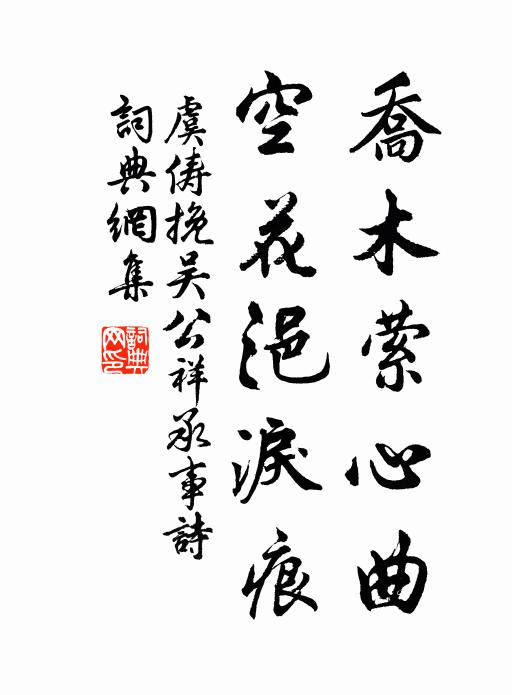 喬木縈心曲
空花浥淚痕
虞儔挽吳公祥承事詩
詞典網集
詞典网印